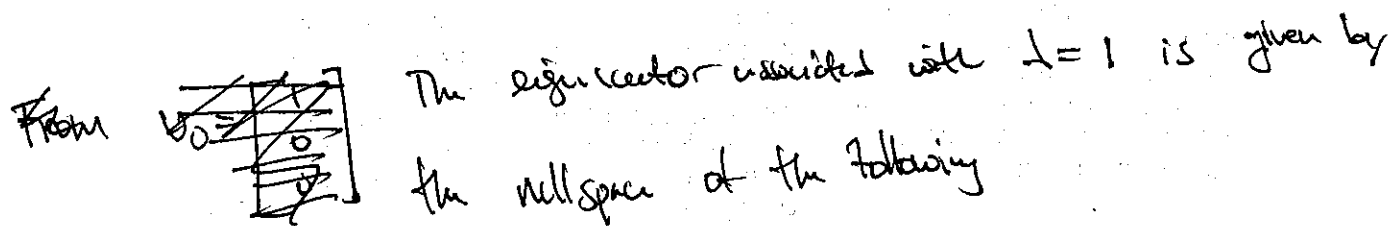 The eigenvector associated with λ = 1 is given by
the nullspace of the following